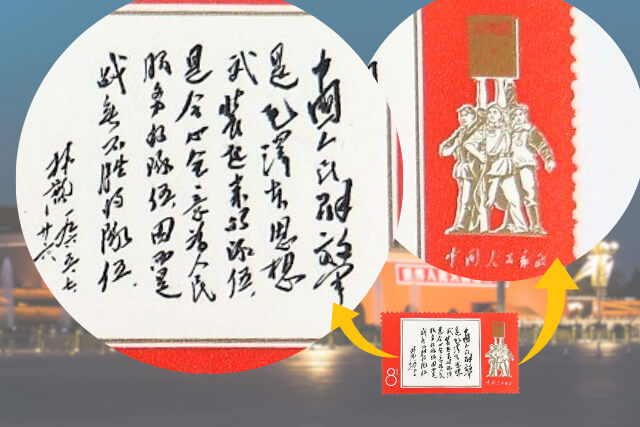 中國人民解放军
是毛澤东思想
武装起来的隊伍，
是全心全意为人民
服务的隊伍，因而是
战无不胜的隊伍．
林彪 一九六五、七、
廿六、
中国人民解放
8